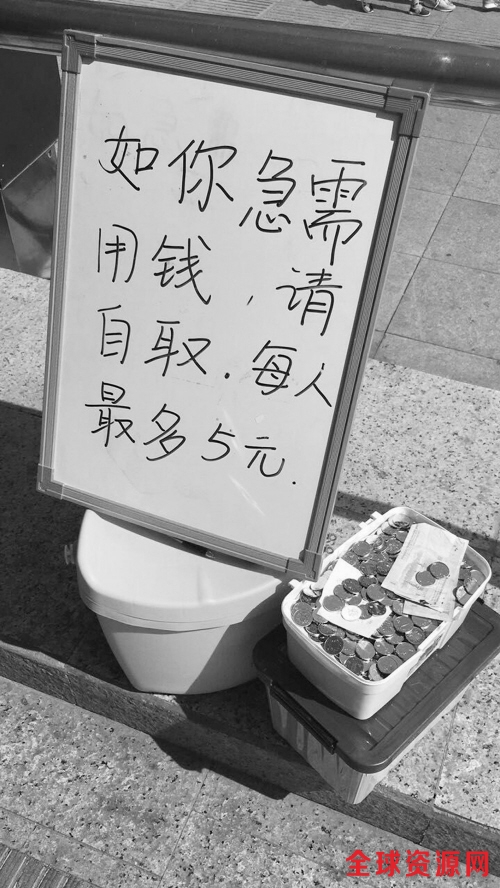 如你急需
用钱，请
自取.每人
最多5元.
全球资源网